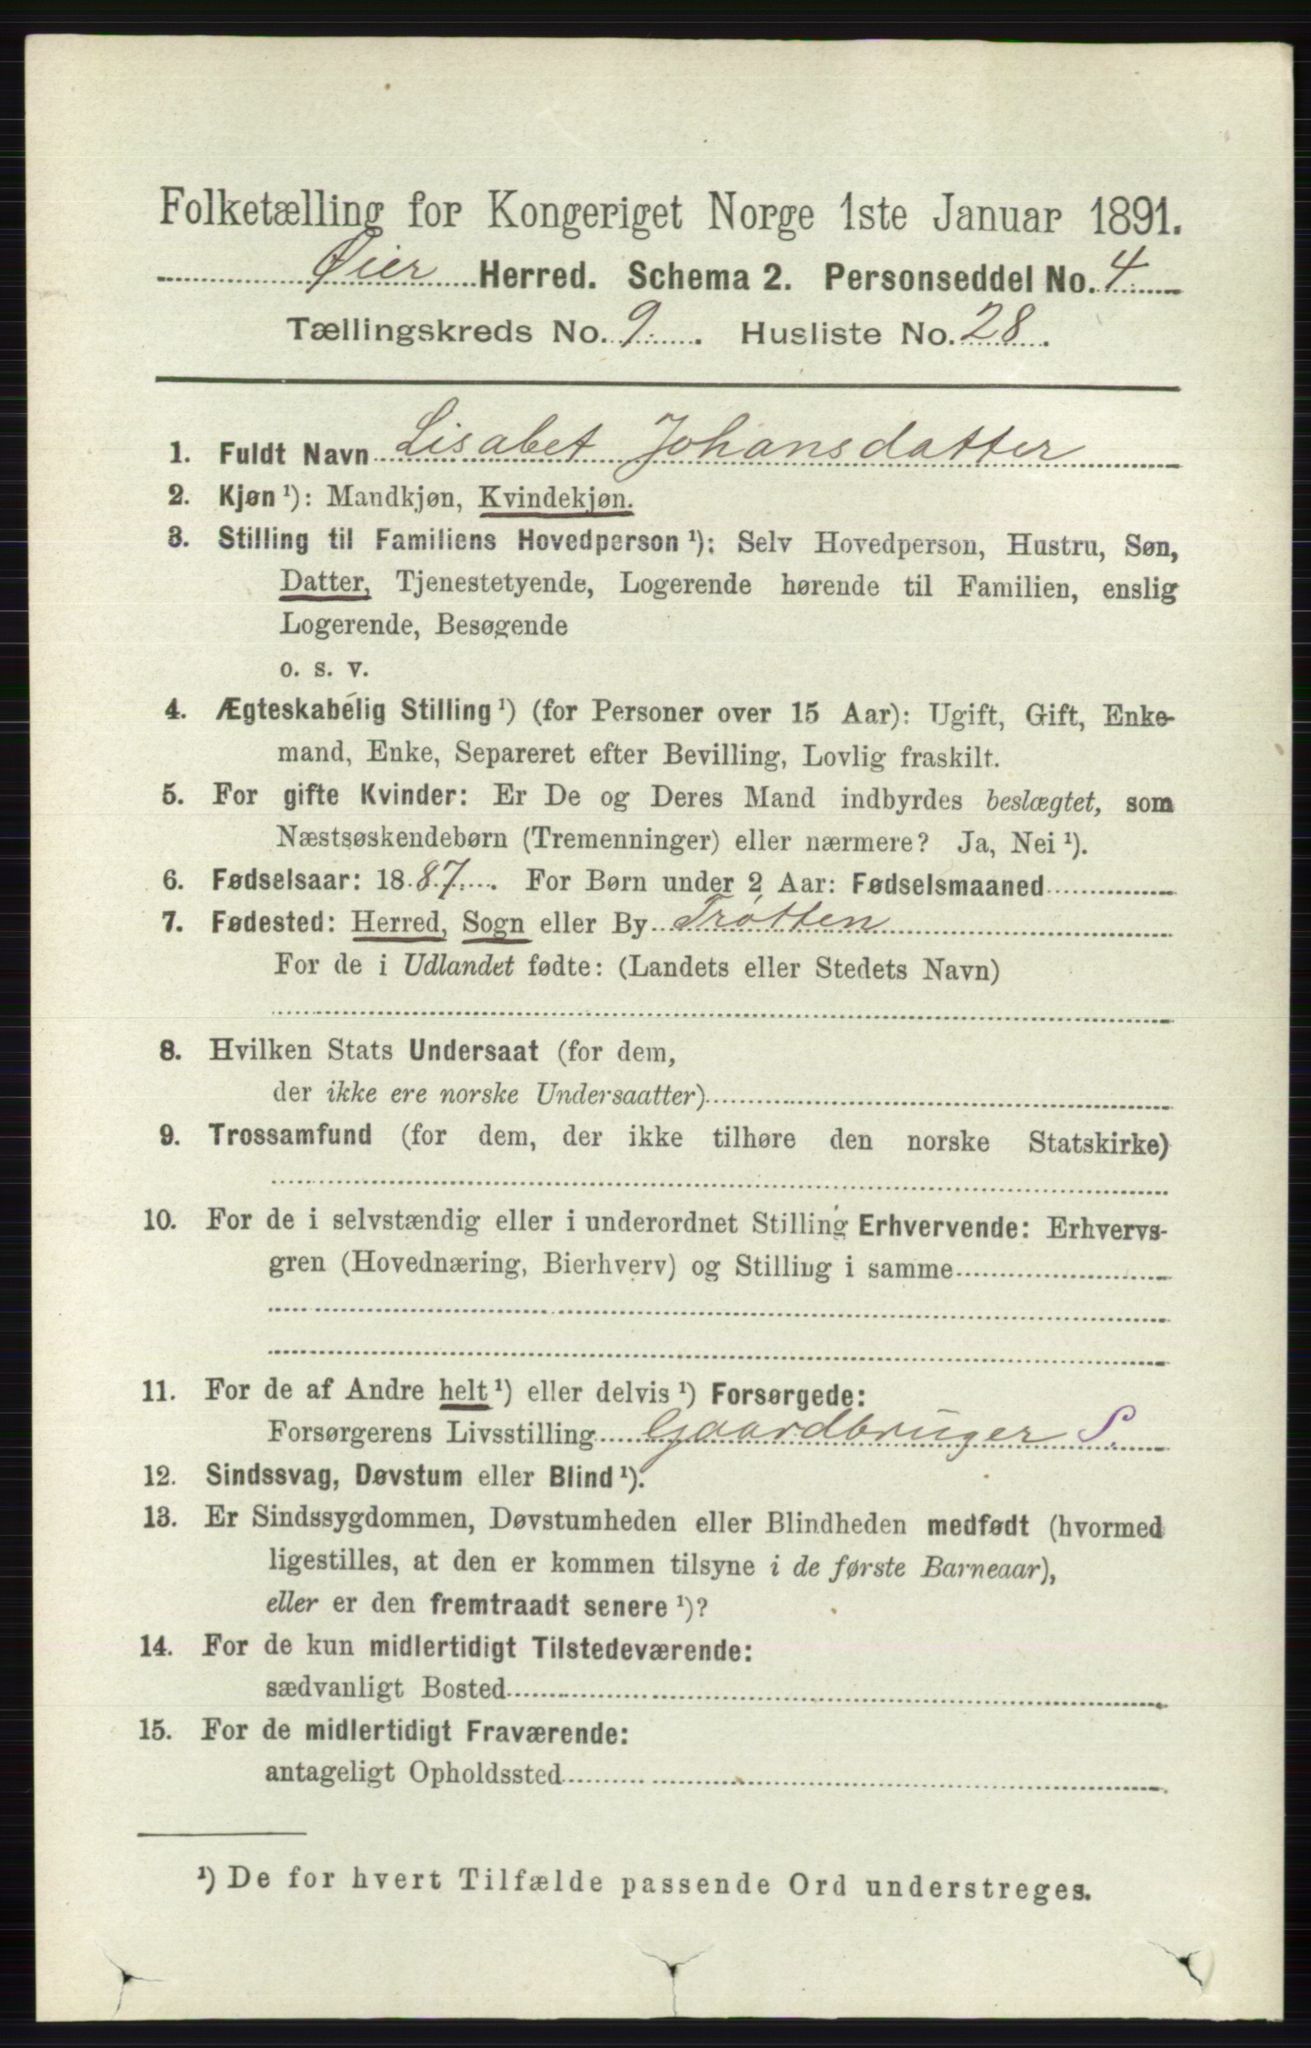 Folketælling for Kongeriget Norge 1ste Januar 1891.
Øier Herred. Schema 2. Personseddel No. 4
Tællingskreds No. 9. Husliste No. 28.
1. Fuldt Navn Lisabet Johansdatter
2. Kjøn ¹): Mandkjøn, Kvindekjøn.
3. Stilling til Familiens Hovedperson ¹): Selv Hovedperson, Hustru, Søn,
Datter, Tjenestetyende, Logerende hørende til Familien, enslig
Logerende, Besøgende
o. s. v.
4. Ægteskabelig Stilling ¹) (for Personer over 15 Aar): Ugift, Gift, Enke-
mand, Enke, Separeret efter Bevilling, Lovlig fraskilt.
5. For gifte Kvinder: Er De og Deres Mand indbyrdes beslægtet, som
Næstsøskendebørn (Tremenninger) eller nærmere? Ja, Nei ¹).
6. Fødselsaar: 1887. For Børn under 2 Aar: Fødselsmaaned
7. Fødested: Herred, Sogn eller By Trøtten
For de i Udlandet fødte: (Landets eller Stedets Navn)
8. Hvilken Stats Undersaat (for dem,
der ikke ere norske Undersaatter)
9. Trossamfund (for dem, der ikke tilhøre den norske Statskirke)
10. For de i selvstændig eller i underordnet Stilling Erhvervende: Erhvervs-
gren (Hovednæring, Bierhverv) og Stilling i samme
11. For de af Andre helt ¹) eller delvis ¹) Forsørgede:
Forsørgerens Livsstilling Gaardbruger S.
12. Sindssvag, Døvstum eller Blind ¹).
13. Er Sindssygdommen, Døvstumheden eller Blindheden medfødt (hvormed
ligestilles, at den er kommen tilsyne i de første Barneaar),
eller er den fremtraadt senere ¹)?
14. For de kun midlertidigt Tilstedeværende:
sædvanligt Bosted
15. For de midlertidigt Fraværende:
antageligt Opholdssted
¹) De for hvert Tilfælde passende Ord understreges.